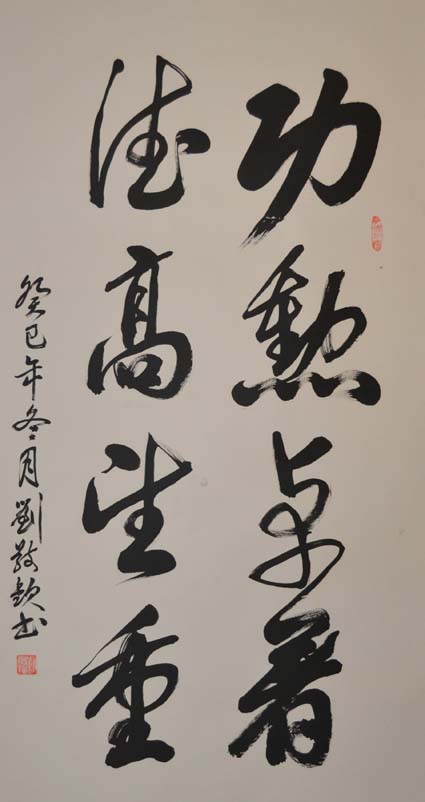 功勲卓著
德高望重
癸巳年冬月劉敬欽书